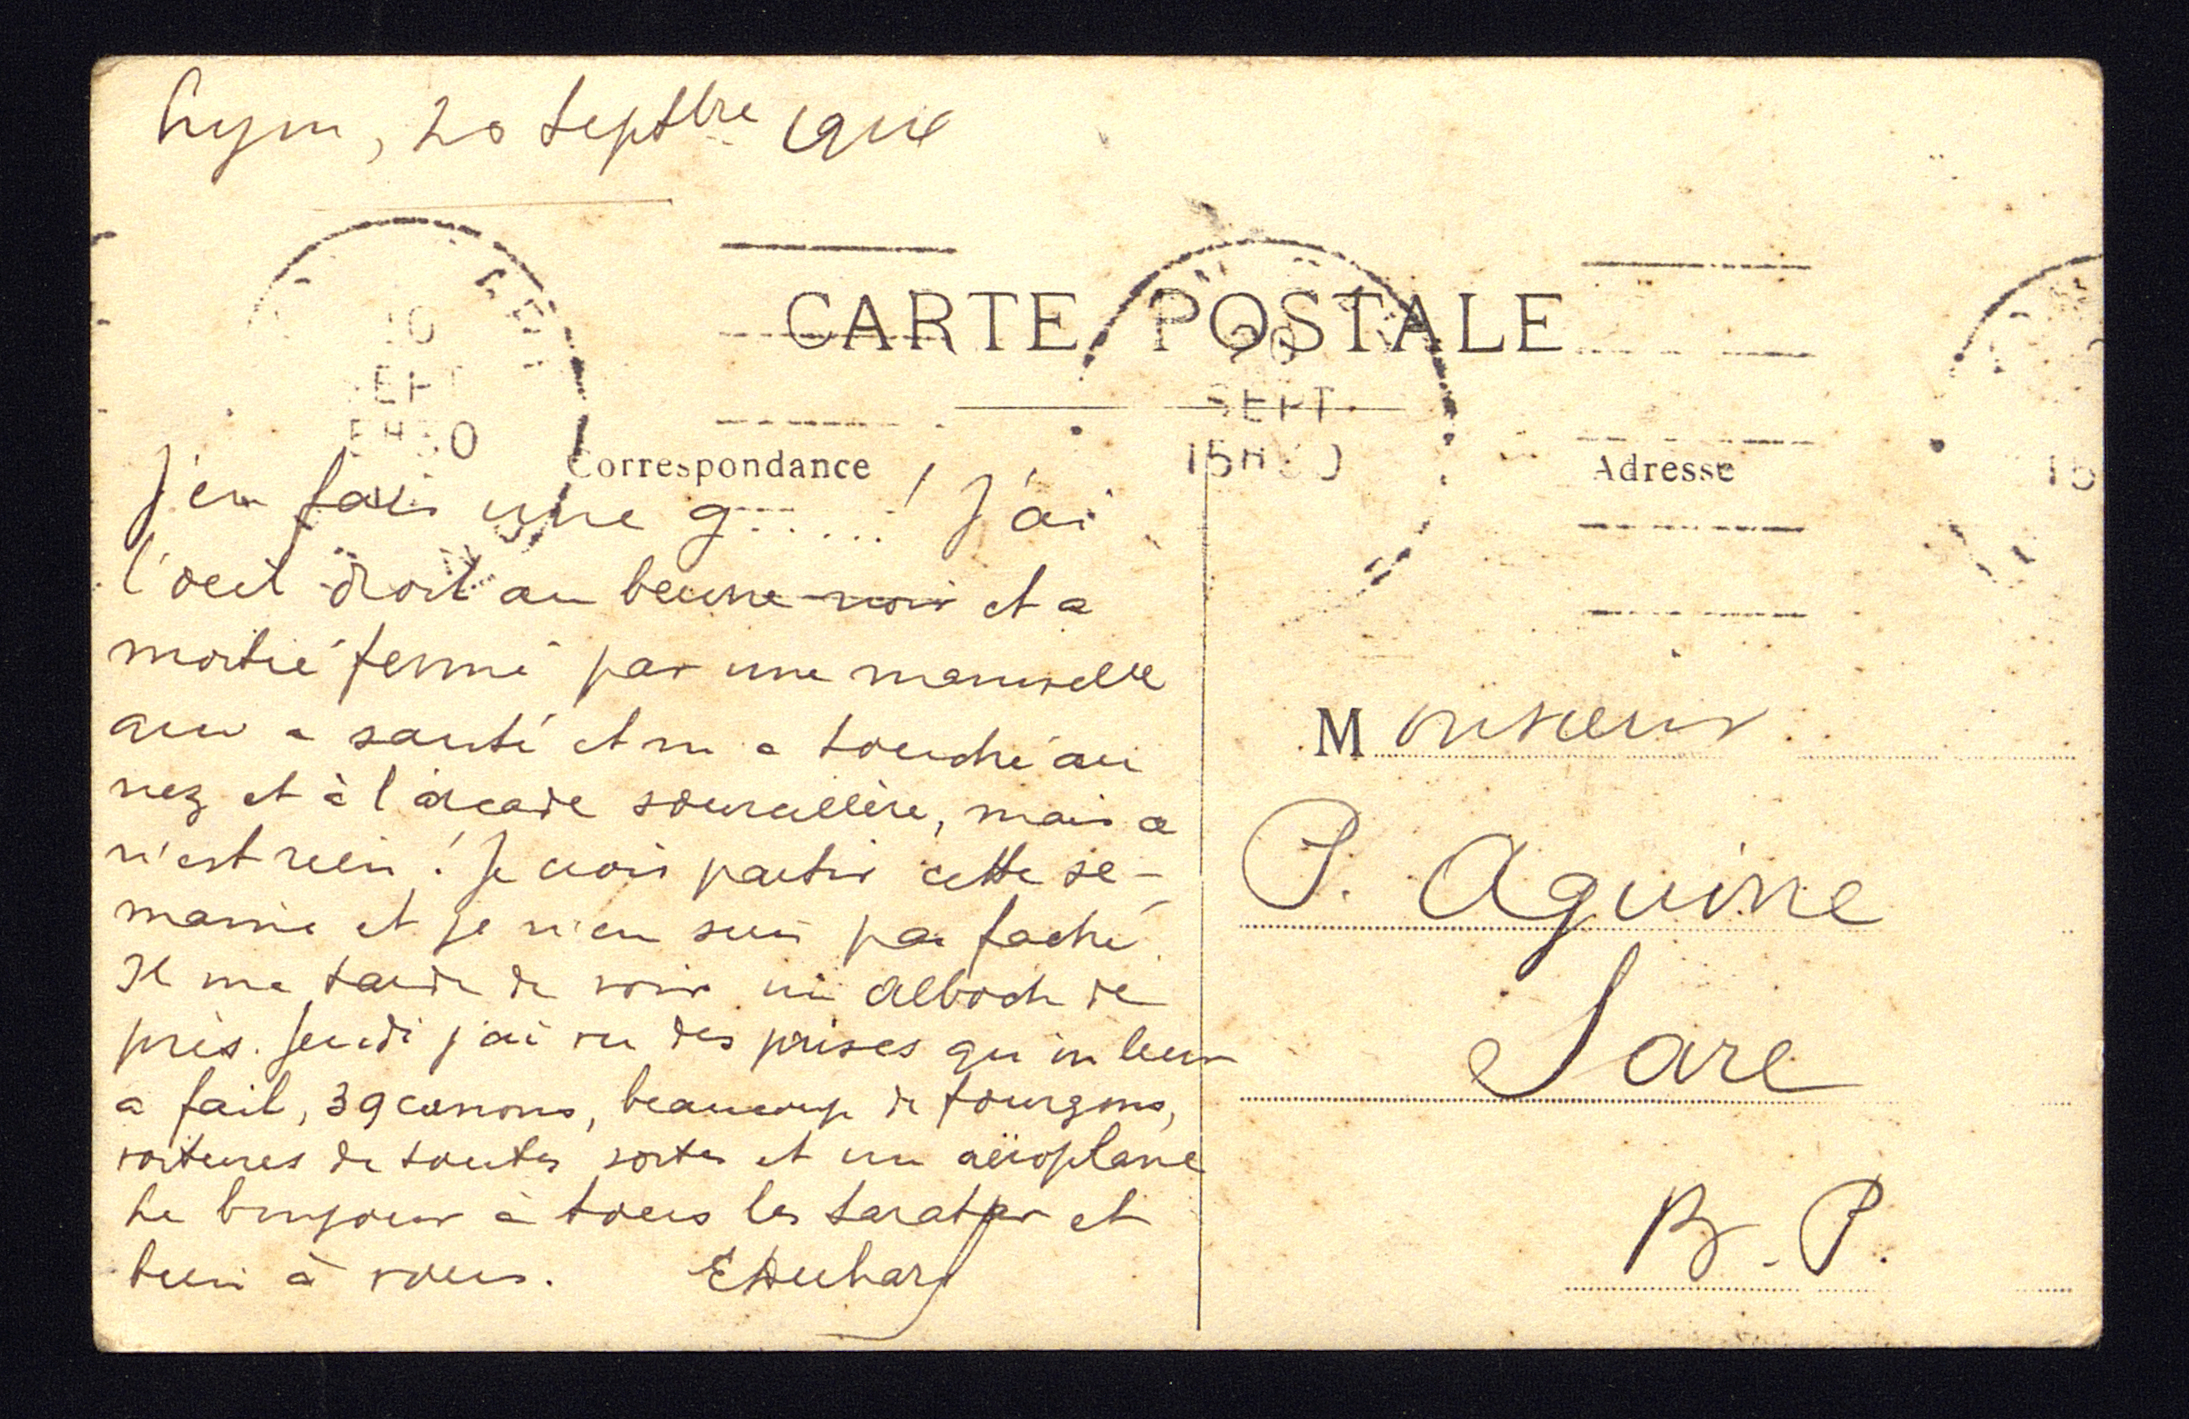 Lyon, 20 Septbre 1914
CARTE POSTALE
20
SEPT
15H30
Correspondance
Adresse
J'en fais une g.......! J'ai
l'oeil droit au beurre noir et a
moitié fermé par une manivelle
qui a sauté et m'a touché au
nez et à l'arcade sourcilière, mais ce
n'est rien! Je crois partir cette se-
maine et je n'en suis pas faché.
Il me tarde de voir un alboch de
près. Jeudi j'ai vu des prises qu'on leur
a fait, 39 canons, beaucoup de fourgons,
voitures de toutes sortes et un aéroplane
Le bonjour à tous les et
bien à vous.
Monsieur
P. Aguirre
Sare
B. P.